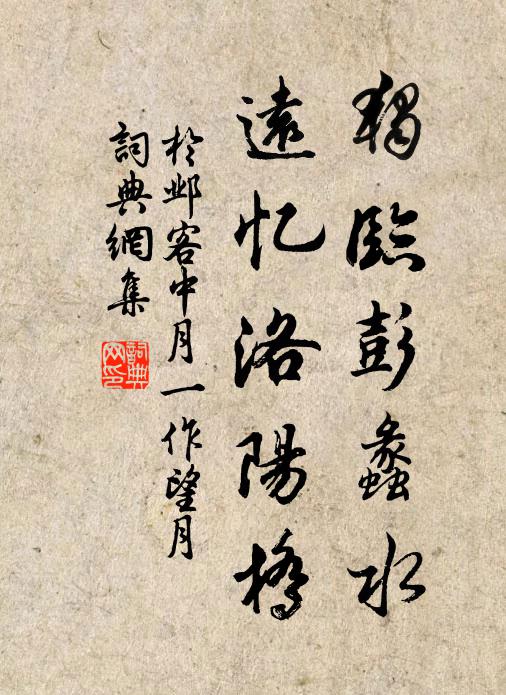 獨臨彭蠡水
遠忆洛陽橋
於邺客中月一作望月
詞典網集
詞典網印